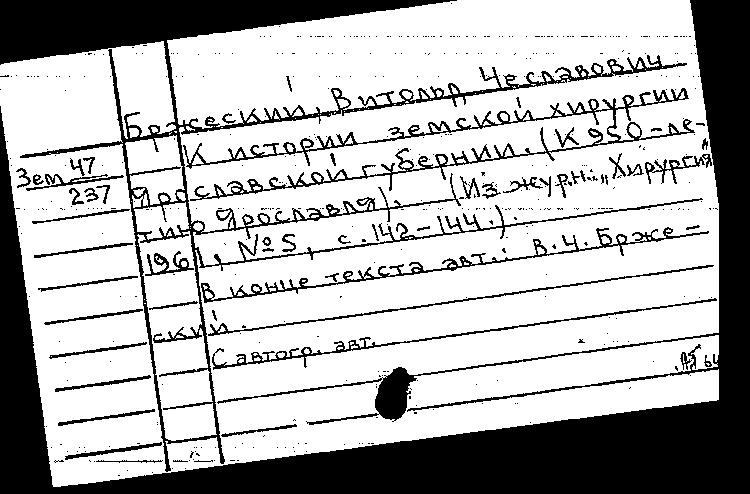 Бржеский, Витольд Чеславович
К истории земской хирургии
Зем 47
237
Ярославской губернии. (К 950-ле-
тию Ярославля). (Из журн.: „Хирургия”
1961, № 5, с. 142-144.).
В конце текста авт.: В.Ч. Брже-
ский.
С автогр. авт.
64